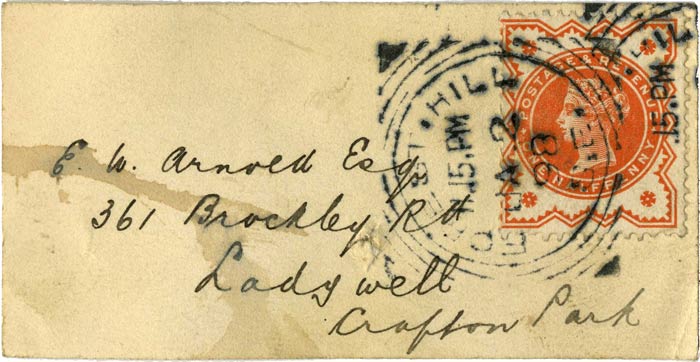 E. W. Arnold Esq.
361 Brockley Rd
Ladywell
Crofton Park
POSTAGE & REVENUE
HILL
15.PM
JA 2
98
S.E.
15.PM